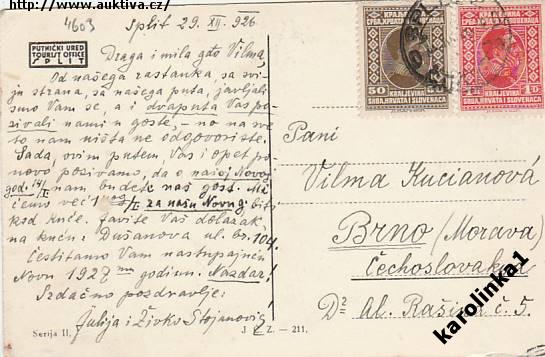 zdroj: http://www.auktiva.cz
4603
Split 29. XII. 926
PUTNIČKI URED
TOURIST OFFICE
SPLIT
Draga i mila gđo Vilma,
Od našega rastanka, sa svi-
ju strana, sa našega puta, javljali
smo Vam se, a i dvaputa Vas po-
zivali nami u goste, – no na sve
to nam ništa ne odgovoriste.
Sada, ovim putem, Vas i opet po-
novo pozivamo, da o našoj Novoj
god. 14/I nam budete naš gost. Mi
ćemo već za našu Novu g. biti
kod kuće. Javite Vaš dolazak
na kuću: Dušanova ul. br. 104.
Čestitamo Vam nastupajuću
Novu 1927 godinu. Nazdar!
Srdačno pozdravlje:
Julija i Živko Stojanović
Serija II.
J. Z. - 211.
КРАЉЕВИНА
СРБА, ХРВАТА И СЛОВЕНАЦА
50 50
KRALJEVINA
SRBA, HRVATA I SLOVENACA
КРАЉЕВИНА
СРБА, ХРВАТА И СЛОВЕНАЦА
1 D
KRALJEVINA
SRBA, HRVATA I SLOVENACA
Paní
Vilma Kucianová
Brno (Morava)
Čechoslovakia
Dz al. Rašina č. 5
karolinka1